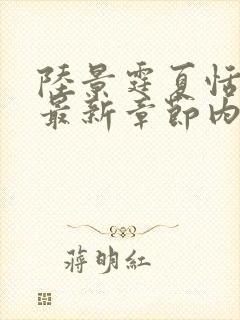 陸景霆夏恬
最新章節內
蔣明紅